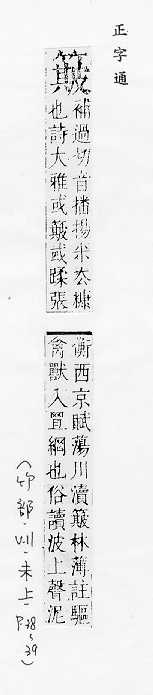 正字通
簸
補過切音播揚米去糠
也詩大雅或簸或蹂張
衡西京賦蕩川瀆簸林薄註驅
禽獸入罝網也俗讀波上聲泥
(竹部・VII・未上・